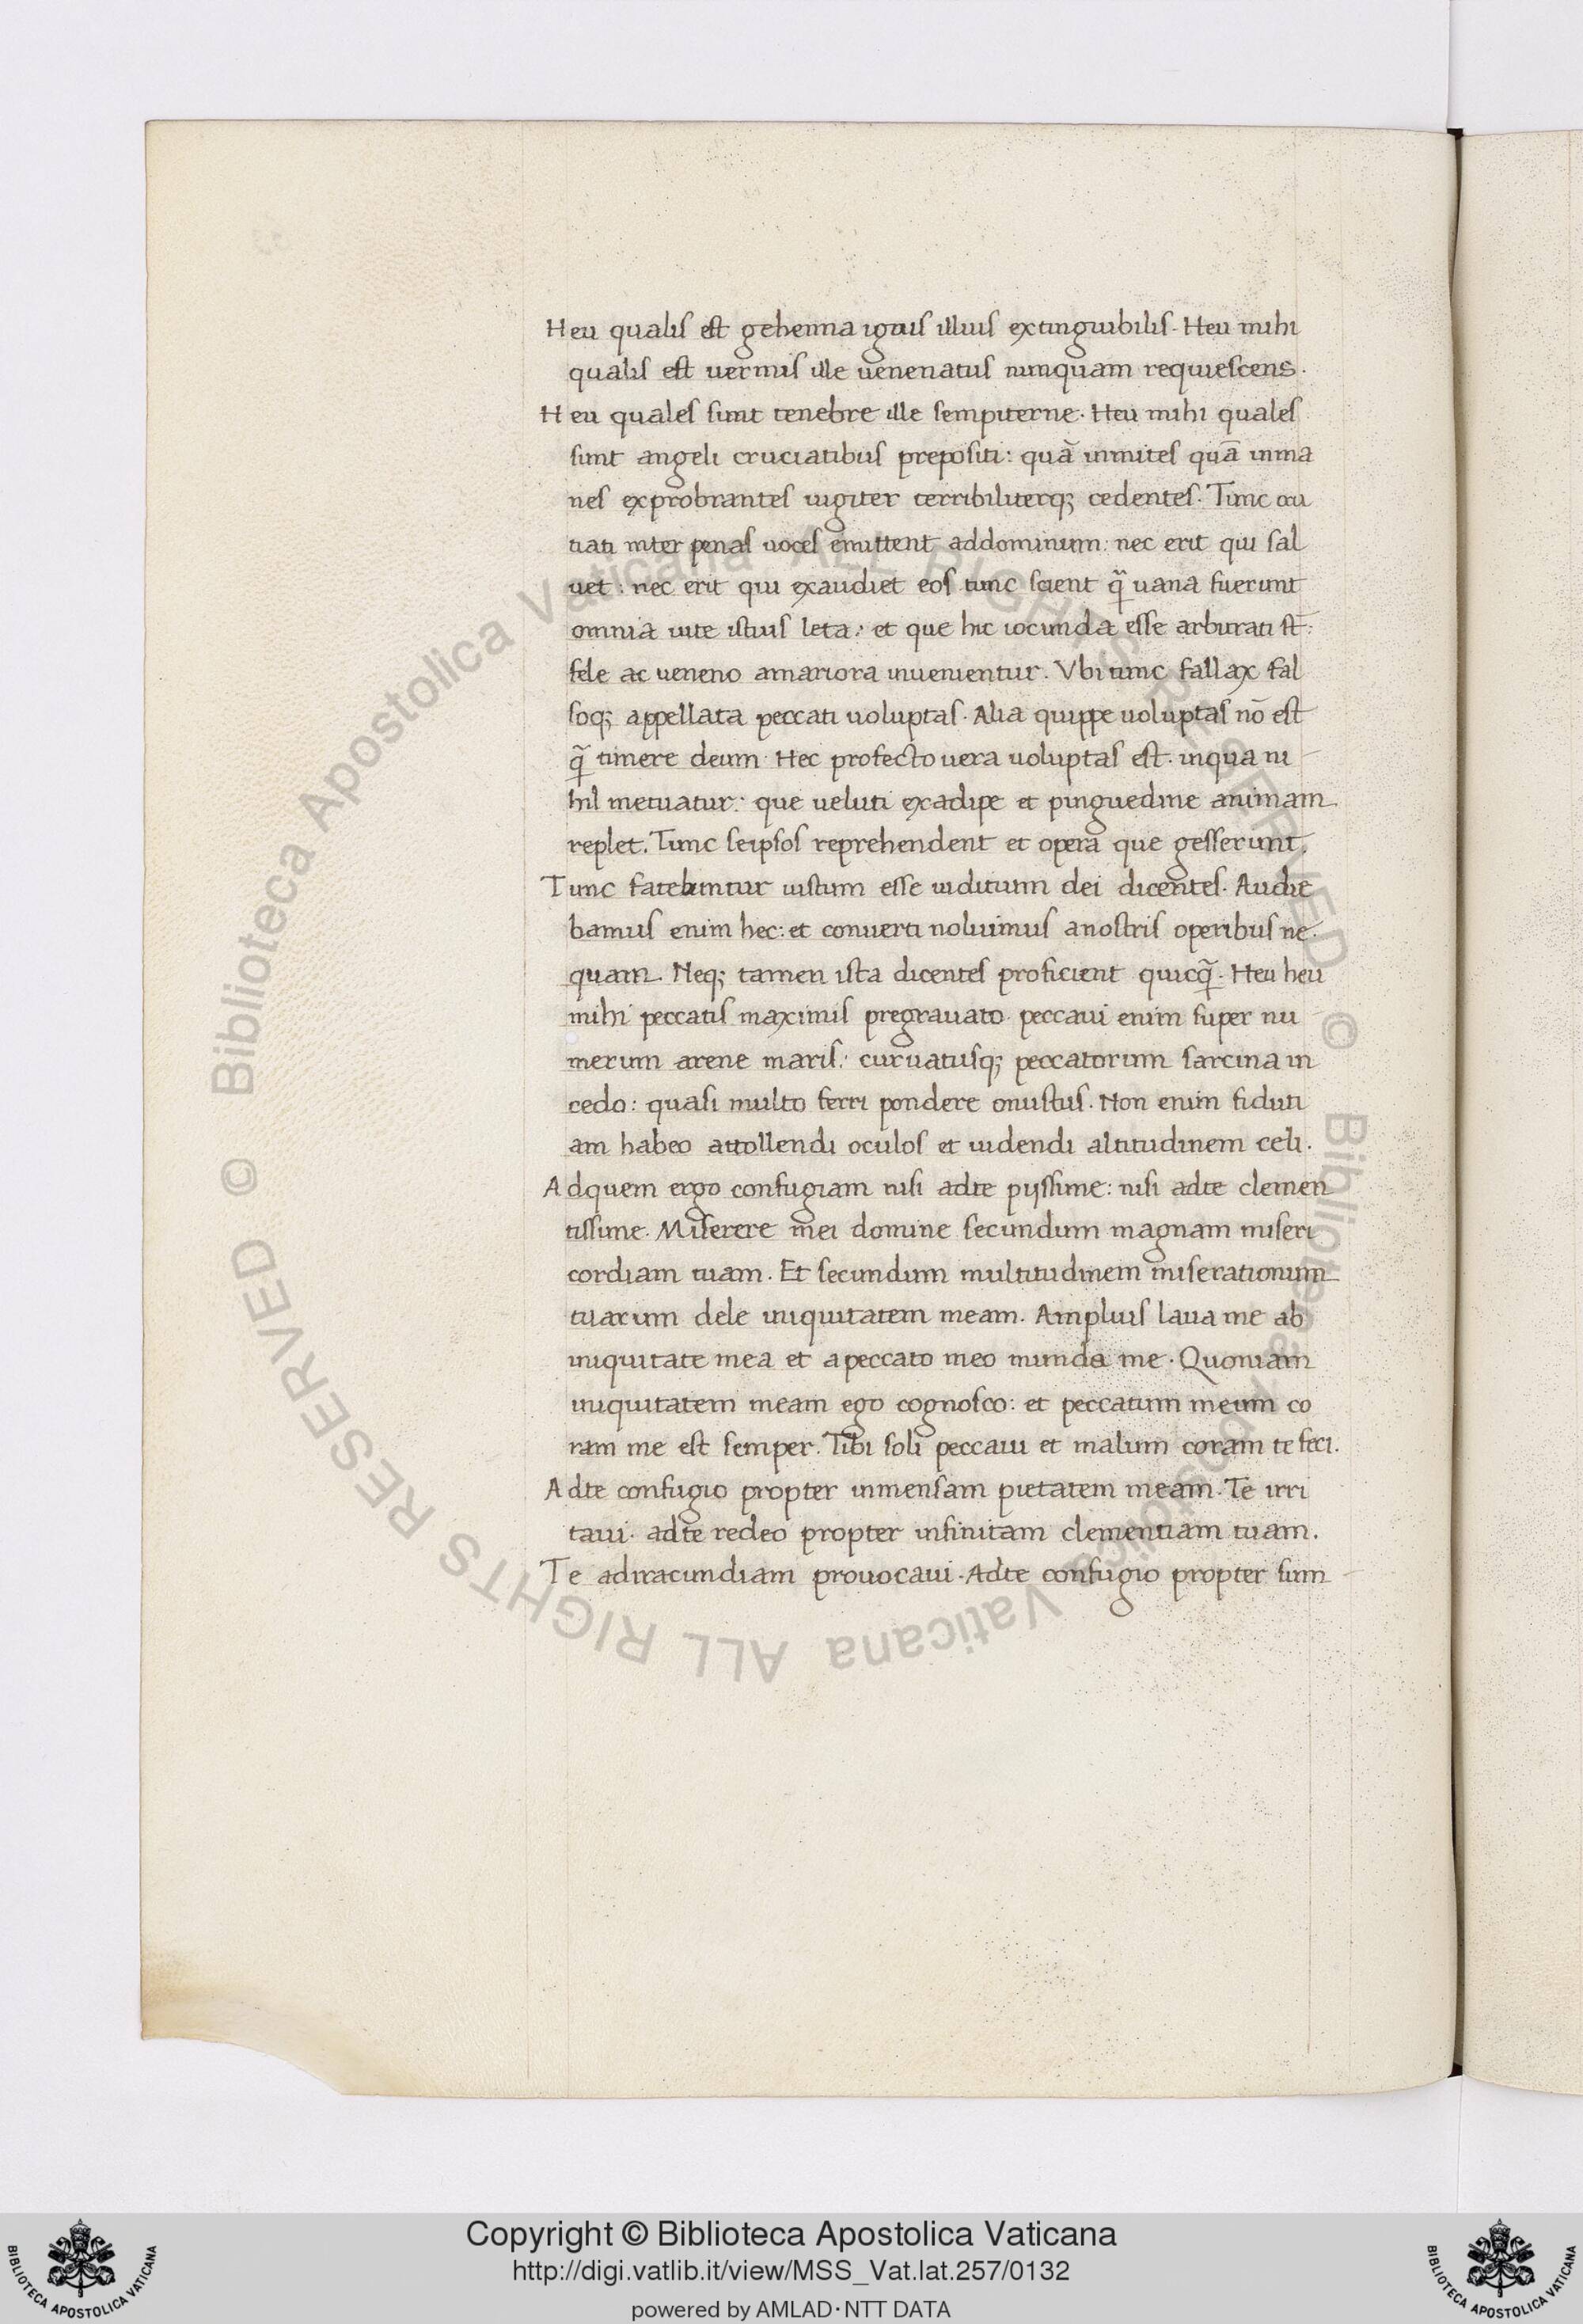 Heu qualis est gehenna ignis illius extinguibilis. Heu mihi
qualis est uermis ille uenenatus nunquam requiescens.
Heu quales sunt tenebre ille sempiterne. Heu mihi quales
sunt angeli cruciatibus prepositi: quā inmites quā inma
nes exprobrantes iugiter terribiliterq; cedentes. Tunc cru
tiati inter penas uoces emittent addominum: nec erit qui sal
uet: nec erit qui exaudiet eos tunc scient q̃ uana fuerunt
omnia uite istius leta: et que hic iocunda esse arbitrati st̄:
fele ac ueneno amariora inuenientur. Vbi tunc fallax fal
soq; appellata peccati uoluptas. Alia quippe uoluptas nō est
q̃ timere deum. Hec profecto uera uoluptas est. inqua ni
hil metuatur: que ueluti exadipe et pinguedine animam
replet. Tunc seipsos reprehendent et opera que gesserunt.
Tunc fatebuntur iustum esse iuditium dei dicentes. Audie
bamus enim hec: et conuerti noluimus anostris operibus ne
quam. Neq; tamen ista dicentes proficient quicq̃. Heu heu
mihi peccatis maximis pregrauato. peccaui enim super nu
merum arene maris: curuatusq; peccatorum sarcina in
cedo: quasi multo ferri pondere onustus. Non enim fiduti
am habeo attollendi oculos et uidendi altitudinem celi.
Adquem ergo confugiam nisi adte pijssime: nisi adte clemen
tissime. Miserere mei domine secundum magnam miseri
cordiam tuam. Et secundum multitudinem miserationum
tuarum dele iniquitatem meam. Amplius laua me ab
iniquitate mea et apeccato meo munda me. Quoniam
iniquitatem meam ego cognosco: et peccatum meum co
ram me est semper. Tibi soli peccaui et malum coram te feci.
Adte confugio propter inmensam pietatem meam. Te irri
taui. adte redeo propter infinitam clementiam tuam.
Te adiracundiam prouocaui. Adte confugio propter sum
© Biblioteca Apostolica Vaticana ALL RIGHTS RESERVED © Biblioteca Apostolica Vaticana ALL RIGHTS RESERVED
Copyright © Biblioteca Apostolica Vaticana
http://digi.vatlib.it/view/MSS_Vat.lat.257/0132
powered by AMLAD·NTT DATA
BIBLIOTECA APOSTOLICA VATICANA
BIBLIOTECA APOSTOLICA VATICANA